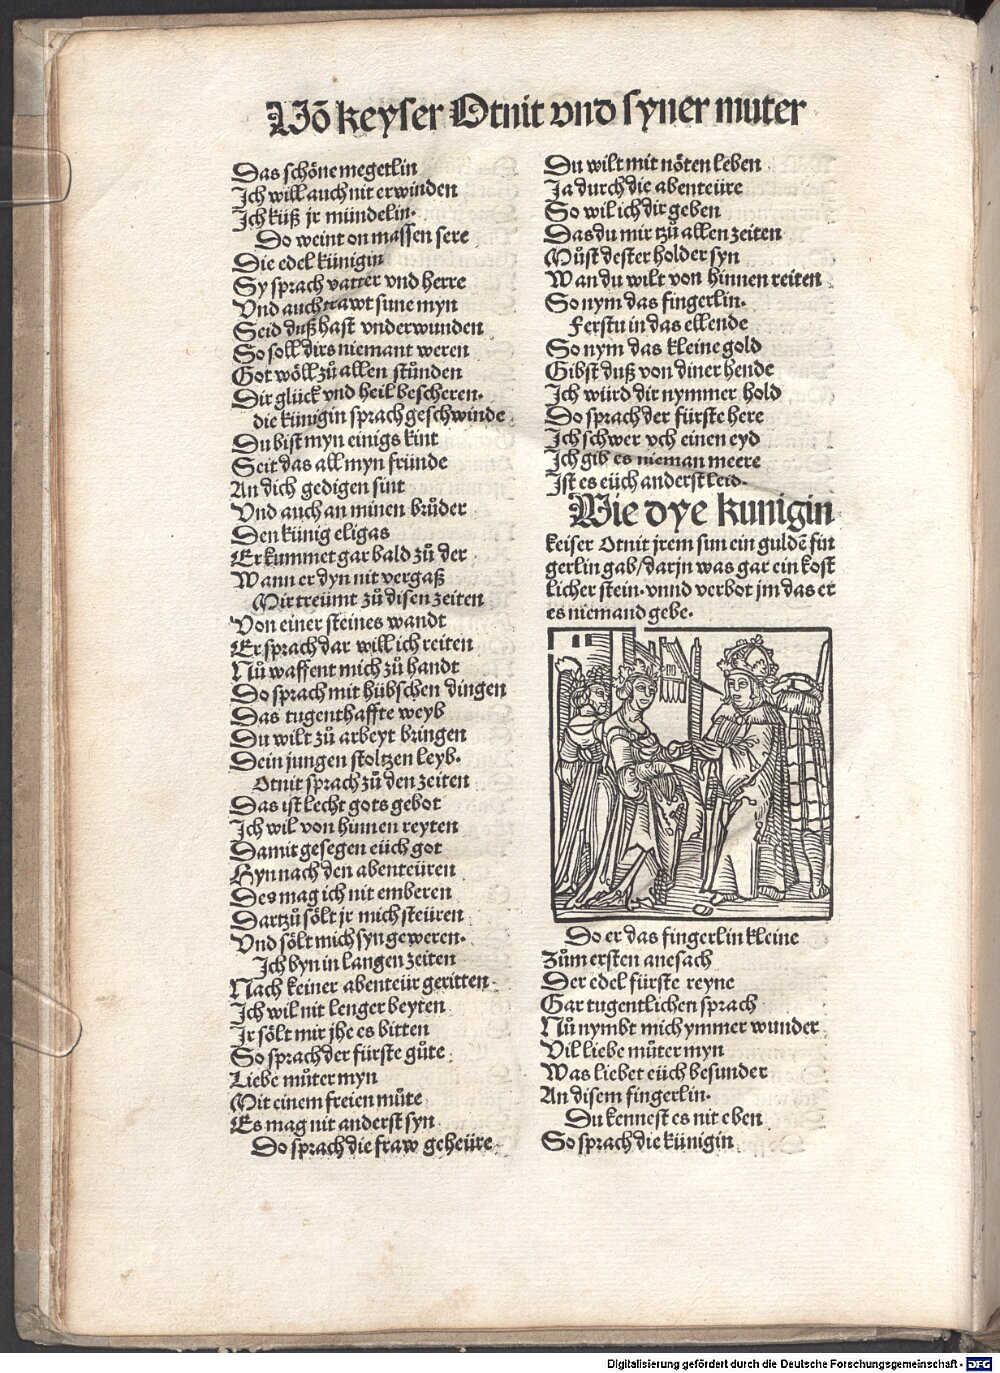 Võ keyser Otnit vnd syner muter
Das schöne megetlin
Ich will auch nit erwinden
Ich küß jr mündelin.
Do weint on massen sere
Die edel künigin
Sy sprach vatter vnd herre
Vnd auch trawt sune myn
Seid duß hast vnderwunden
So soll dirs niemant weren
Got wöll zů allen stůnden
Dir glück vnd heil bescheren.
die künigin sprach geschwinde
Du bist myn einigs kint
Seit das all myn fründe
An dich gedigen sint
Vnd auch an minen brůder
Den künig eligas
Er kummet gar bald zů der
Wann er dyn nit vergaß
Mir treümt zů disen zeiten
Von einer steines wandt
Er sprach dar will ich reiten
Nů waffent mich zů handt
Do sprach mit hübschen dingen
Das tugenthaffte weyb
Du wilt zů arbeyt bringen
Dein jungen stoltzen leyb.
Otnit sprach zů den zeiten
Das ist lecht gots gebot
Ich wil von hinnen reyten
Damit gesegen eüch got
Hyn nach den abenteüren
Des mag ich nit emberen
Dartzů sölt jr mich steüren
Vnd sölt mich syn geweren.
Ich byn in langen zeiten
Nach keiner abenteür geritten
Ich wil nit lenger beyten
Jr sölt mir jhe es bitten
So sprach der fürste gůte
Liebe můter myn
Mit einem freien můte
Es mag nit anderst syn
Do sprach die fraw geheüre
Du wilt mit nöten leben
Ja durch die abenteüre
So wil ich dir geben
Das du mir tzů allen zeiten
Můst dester holder syn
Wan du wilt von hinnen reiten
So nym das fingerlin.
Ferstu in das ellende
So nym das kleine gold
Gibst duß von diner hende
Ich würd dir nymmer hold
Do sprach der fürste here
Ich schwer vch einen eyd
Ich gib es nieman meere
Ist es eüch anderst leid.
Wie dye kunigin
keiser Otnit jrem sun ein guldē fin
gerlin gab/darjn was gar ein kost
licher stein. vnnd verbot jm das er
es niemand gebe.
Do er das fingerlin kleine
Zům ersten anesach
Der edel fürste reyne
Gar tugentlichen sprach
Nů nymbt mich ymmer wunder
Vil liebe můter myn
Was liebet eüch besunder
An disem fingerlin.
Du kennest es nit eben
So sprach die künigin
Digitalisierung gefördert durch die Deutsche Forschungsgemeinschaft - DFG